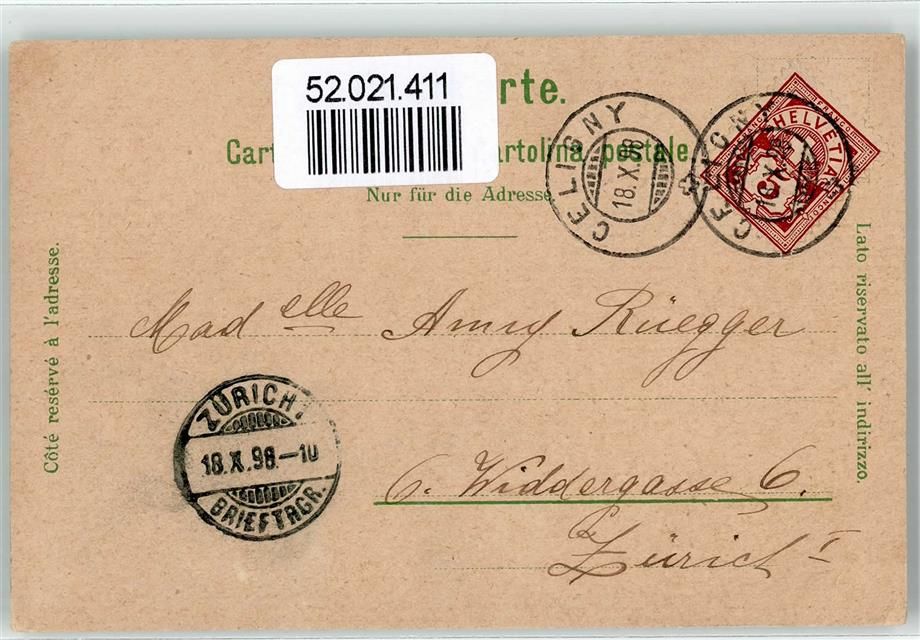 52.021.411
rte.
Cart artolina postale.
Nur für die Adresse
CELIGNY
18.X.98
CELIGNY
18.X.98
FRANCO
HELVETIA
5
Côté resérvé à l'adresse.
Lato riservato all' indirizzo.
Mad elle Amig Rüegger
ZÜRICH
18.X.98.-10
BRIEFTRGR.
6. Widdergasse 6.
Zürich I